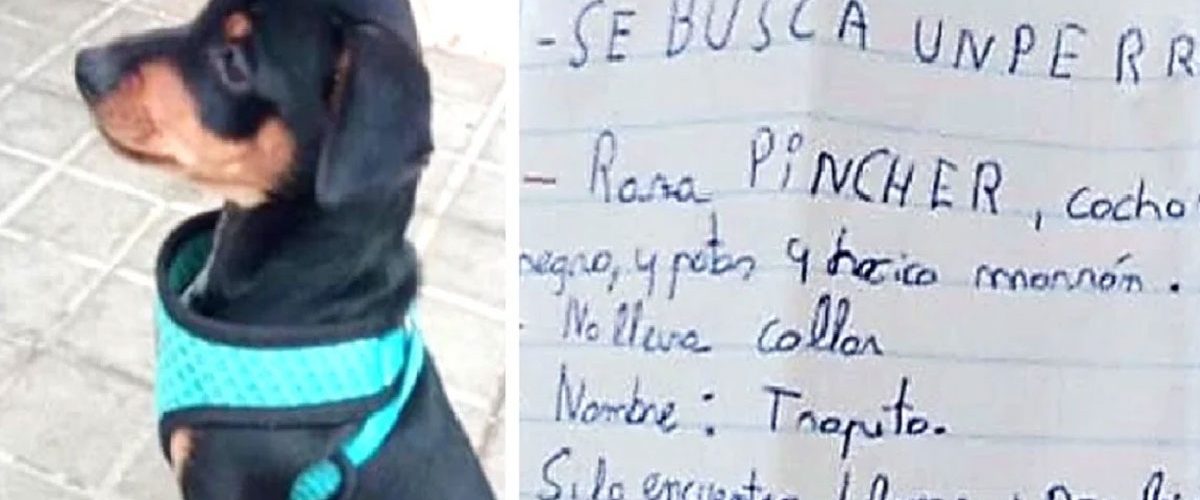 - SE BUSCA UN PERR
- Raza PiNCHER, cacho
negro, y patas y hocico marrón.
- No lleva collar
Nombre: Trapito.
Si lo encuentra